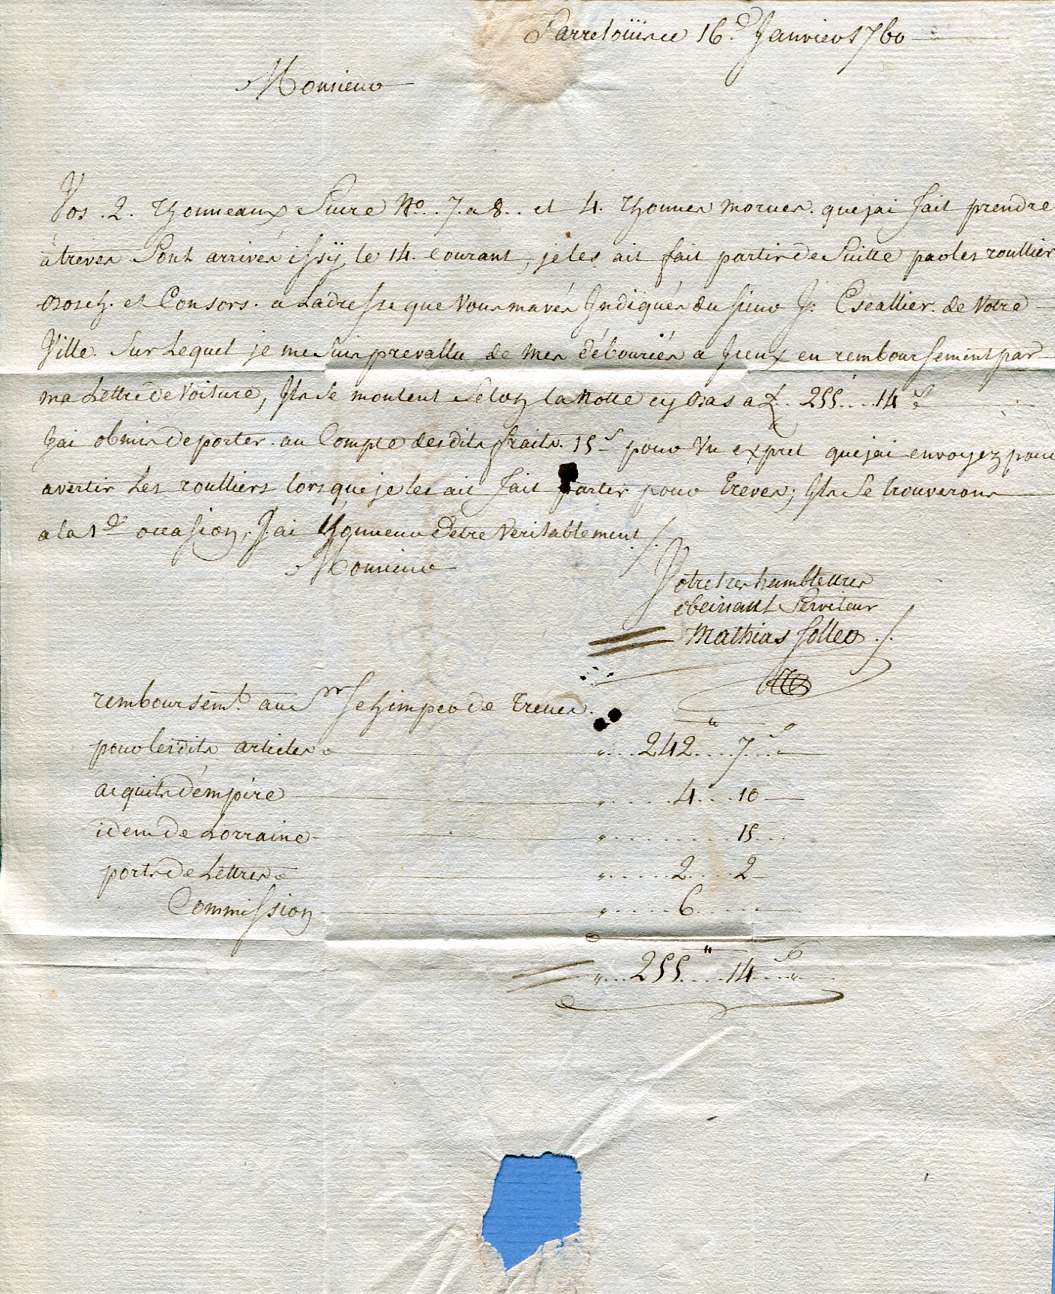 Sarrelouïs ce 16.e Janvier 1760
Monsieur
Vos .2. Thonneaux Sucre No. 7. a 8. et 4. Thonnes morues. que jai fait prendre
a treves Sont arrivés issÿ le 14. Courant, je les ait fait partir de Suitte par les roullier
Bosch. et Consors. a Ladresse que Vous mavés Jndiqués du Sieur J: Escallier. de Votre
Ville. Sur Lequel je me Suis prevallu de mes débourées a Jceux en remboursement par
ma Lettre de Voiture, Jls Se montent Selon la Notte cy bas a L. 255...14 s
Jai obmis de porter. au Compte des dits fraits. 15 s pour Vn expret que jai envoyez pour
avertir Les roulliers lors que je les ait fait parter pour treves; Jls Se trouverons
a la 1.e occasion. J'ai Lhonneur d'etre Veritablement ./.
Monsieur
Votre tres humble tres
obeissant Serviteur
Mathias Solleo ./.
remboursemt. au Sr Schimper de Treves.
pour lesdits articles „...242...7 s
acquits d'empire „....4...10
idem de Lorraine „.......15
ports de Lettres „....2...2
Commission „.....6....
„...255...14 s